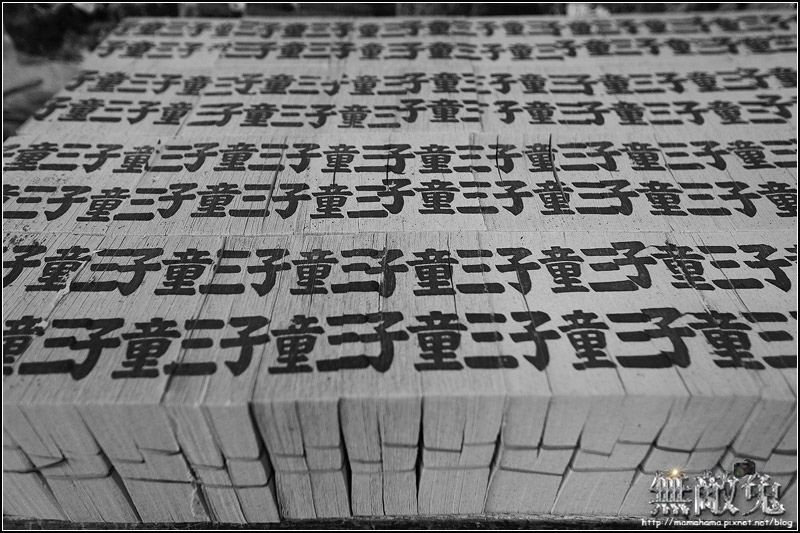 童三子童三子童三子童三子童三子童三子童三子童三子
三子童三子童三子童三子童三子童三子童三子童三子童三子
子童三子童三子童三子童三子童三子童三子童三子童三子童
三子童三子童三子童三子童三子童三子童三子童三子童三子
童三子童三子童三子童三子童三子童三子童三子童三
三子童三子童三子童三子童三子童三子童三子童
子童三子童三子童三子童三子童三子童三子
童三子童三子童三子童三子童三子童三
無敵兔
http://mamahama.pixnet.net/blog